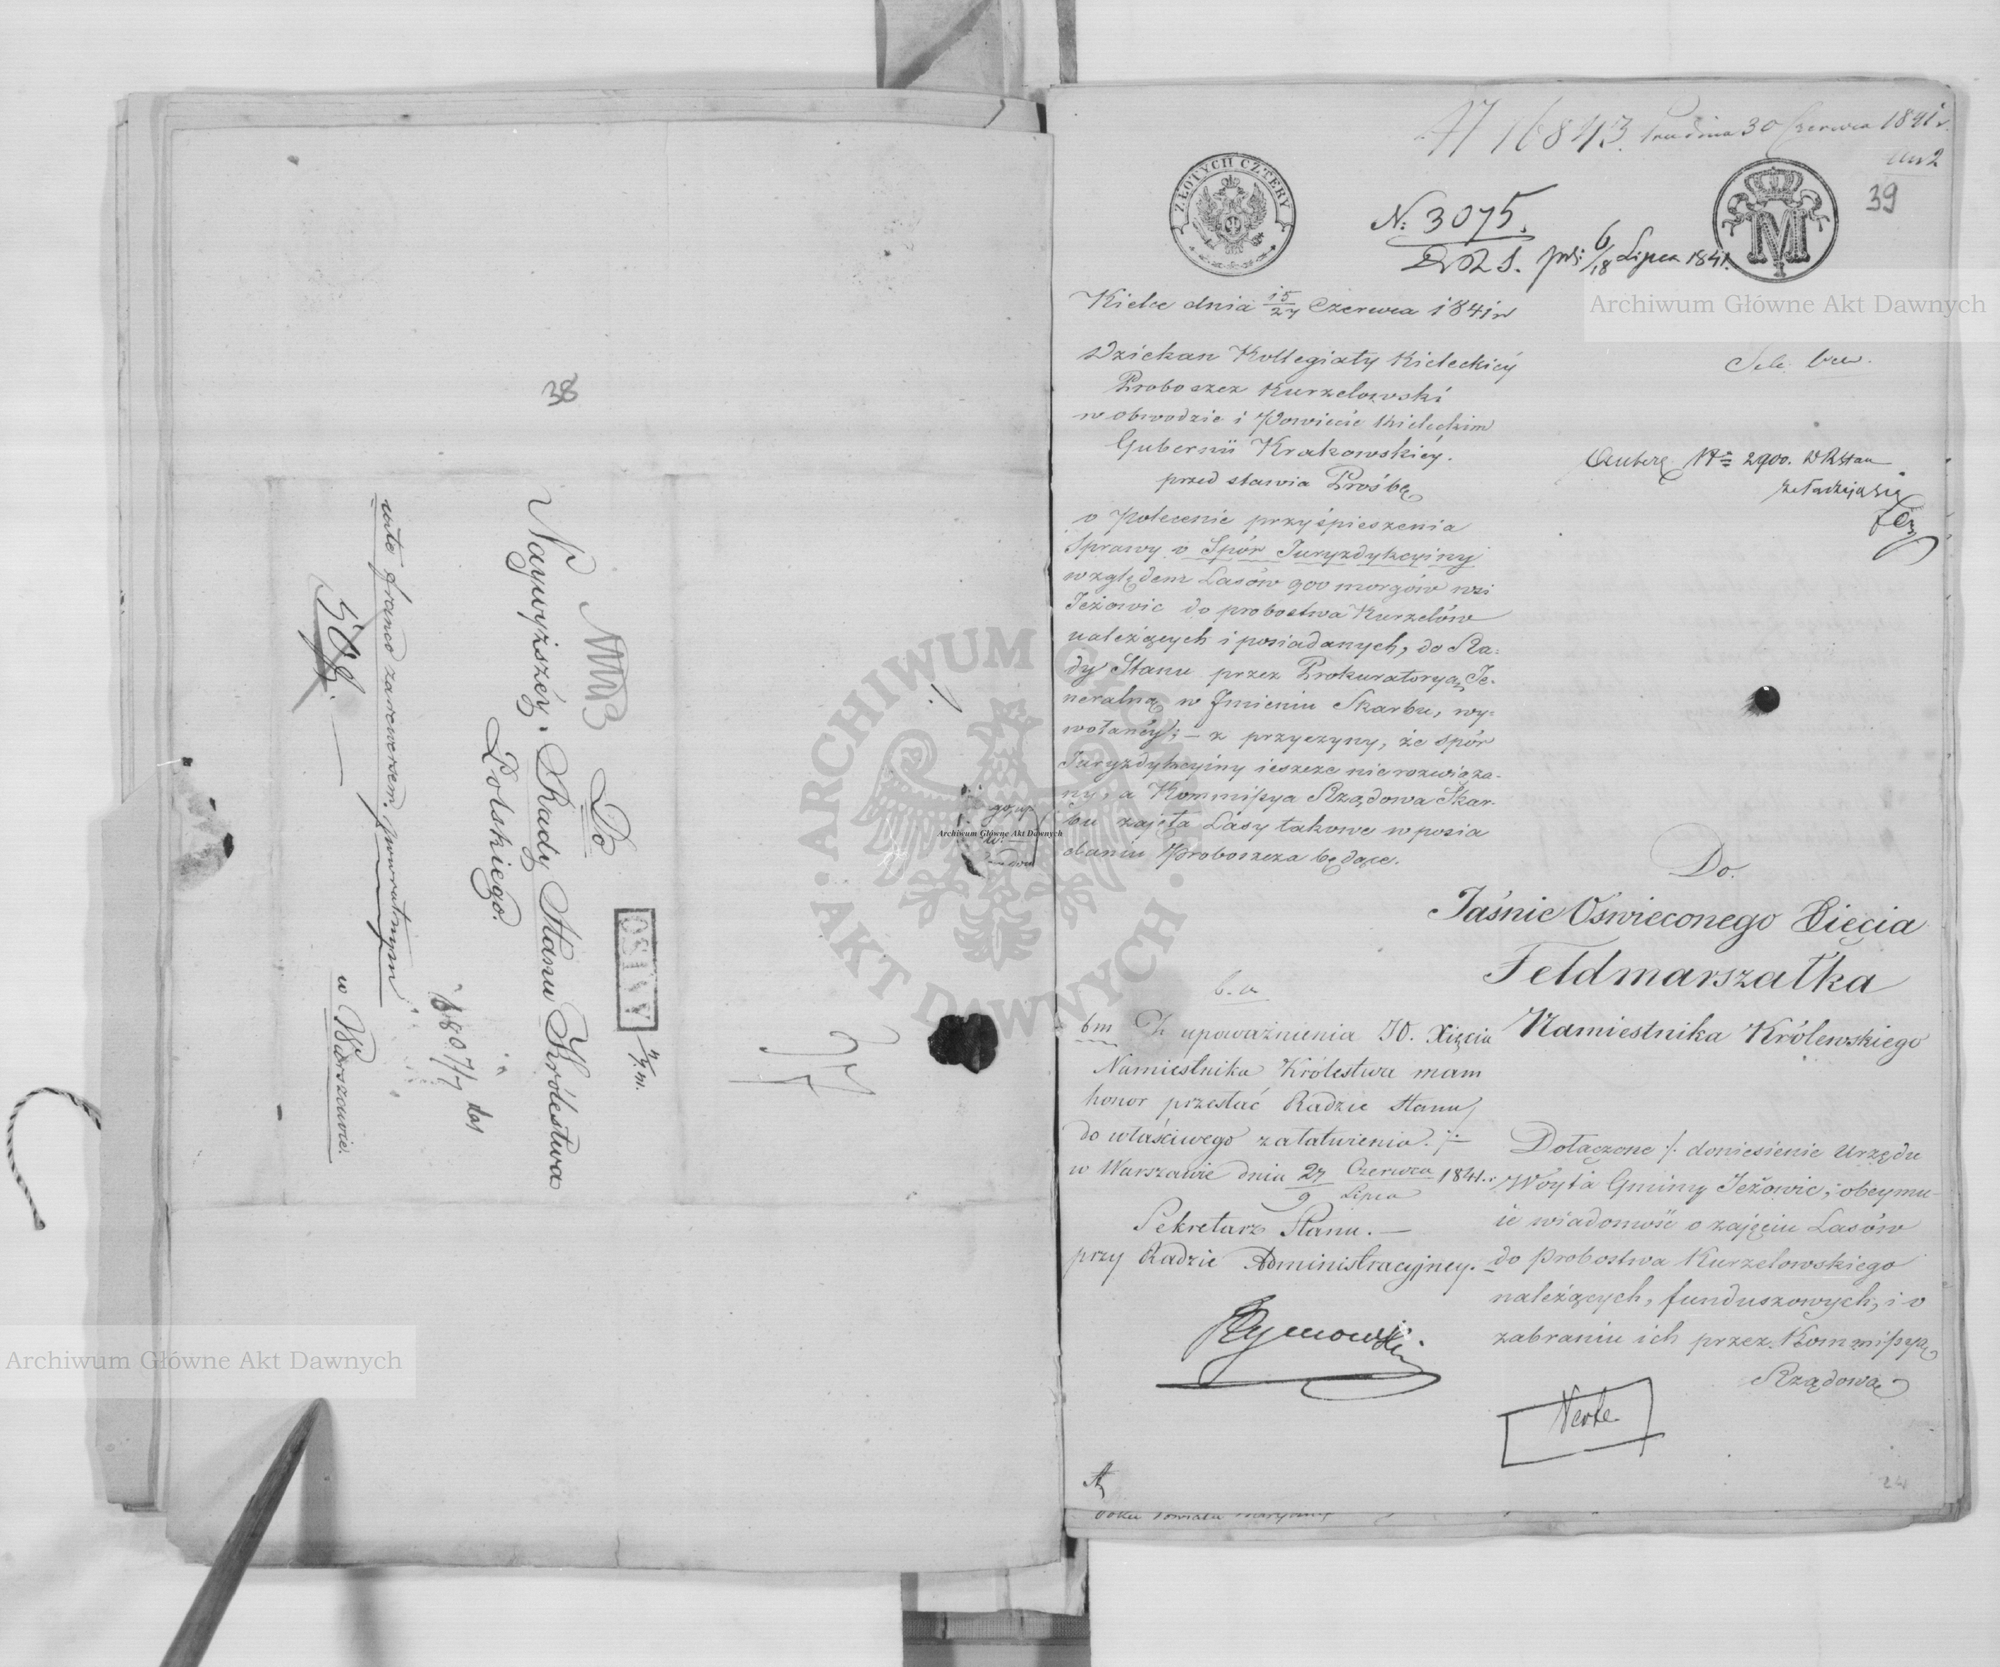 38
Do
Naywyższéy Rady Stanu Królestwa
Polskiego.
w Warszawie.
franco za rewersem powrotnym
16807/7
№ 16843. Grudnia 30 Czerwca 1841 r.
39
ZŁOTYCH CZTERY
M
N: 3075.
6/18 Lipca 1841.
Kielce dnia 15/27 Czerwca 1841 r
Dziekan Kollegiaty Kieleckiéy
Proboszcz Kurzelowski
w obwodzie i Powiecie Kieleckim
Gubernii Krakowskiéy.
przedstawia Prośbę
o Polecenie przyśpieszenia
Sprawy o Spór Juryzdykcyiny
względem Lasów 900 morgów wsi
Jeżowic do probostwa Kurzelów
należących i posiadanych, do Ra:
dy Stanu przez Prokuratoryą Je-
neralną w Jmieniu Skarbu, wy-
wołanéy; – z przyczyny, że spór
Juryzdykcyiny ieszcze nierozwiąza-
ny, a Kommissya Rządowa Skar-
bu zajęła Lasy takowe w posia
daniu Proboszcza będące.
№ 2900.
Do.
Jaśnie Oświeconego Xięcia
Feldmarszałka
Namiestnika Królewskiego
Z upoważnienia JO. Xięcia
Namiestnika Królestwa mam
honor przesłać Radzie Stanu
do właściwego załatwienia.
w Warszawie dnia 27 Czerwca / 9 Lipca 1841. r
Sekretarz Stanu. –
przy Radzie Administracyjney. –
Dołączone doniesienie Urzędu
Woyta Gminy Jeżowic, obeymu-
ie wiadomość o zajęciu Lasów
do Probostwa Kurzelowskiego
należących, funduszowych, i o
zabraniu ich przez Kommissyą
Rządową
Archiwum Główne Akt Dawnych
Archiwum Główne Akt Dawnych
Archiwum Główne Akt Dawnych
ARCHIWUM GŁÓWNE AKT DAWNYCH